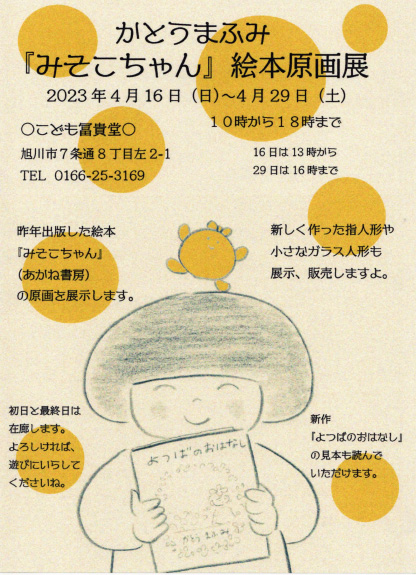 かとうまふみ
『みそこちゃん』絵本原画展
2023年4月16日（日）～4月29日（土）
〇こども冨貴堂〇
旭川市7条通8丁目左2-1
TEL 0166-25-3169
１０時から１８時まで
16日は13時から
29日は16時まで
昨年出版した絵本
『みそこちゃん』
（あかね書房）
の原画を展示します。
新しく作った指人形や
小さなガラス人形も
展示、販売しますよ。
初日と最終日は
在廊します。
よろしければ、
遊びにいらして
くださいね。
新作
『よつばのおはなし』
の見本も読んで
いただけます。
よつばのおはなし
かとうまふみ